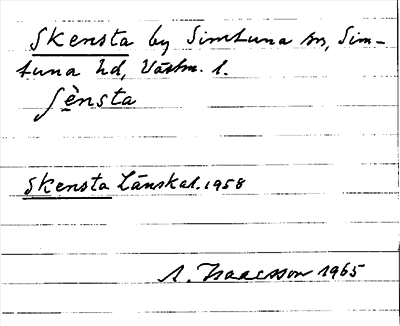 Skensta by Simtuna sn, Sim-
tuna hd, Västm. l.
ʃènsta
Skensta Länskal. 1958
A. Isaacsson 1965